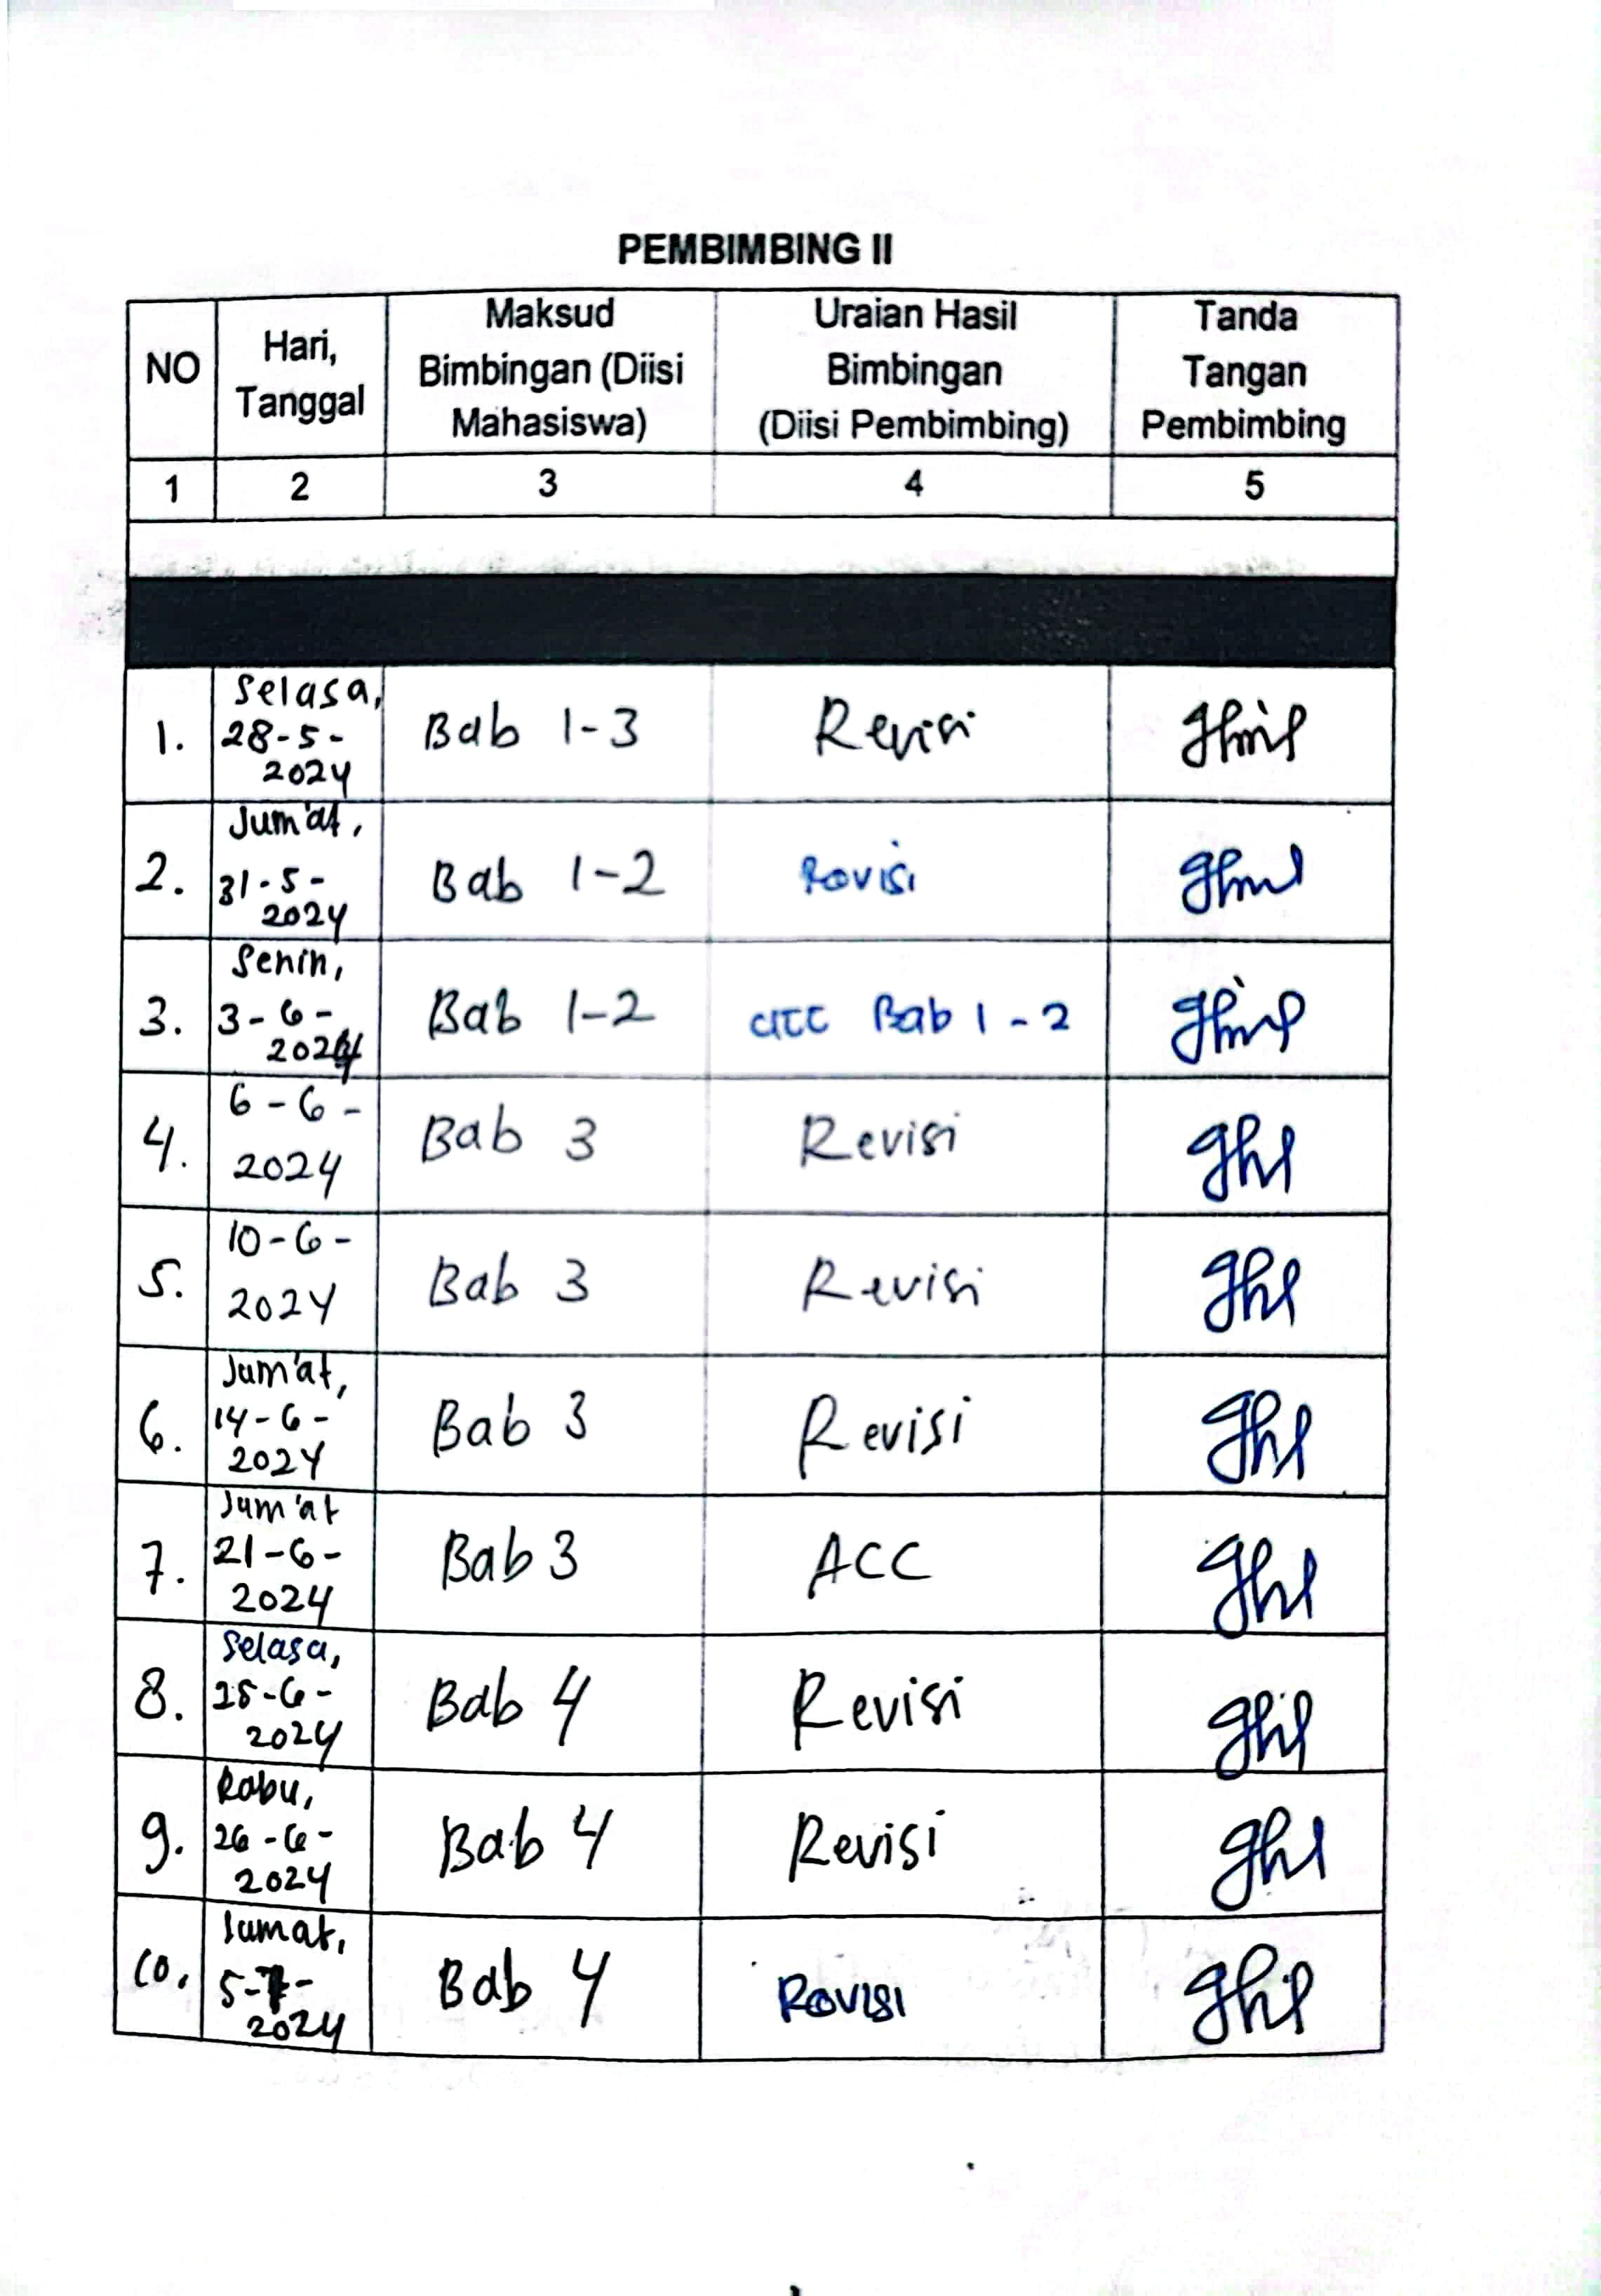 PEMBIMBING II
NO
Hari,
Tanggal
Maksud
Bimbingan (Diisi
Mahasiswa)
Uraian Hasil
Bimbingan
(Diisi Pembimbing)
Tanda
Tangan
Pembimbing
1 2 3 4 5
1.
Selasa,
28-5-
2024
Bab 1-3
Revisi
2.
Jum'at,
31-5-
2024
Bab 1-2
Revisi
3.
Senin,
3-6-
2024
Bab 1-2
acc Bab 1-2
4.
6-6-
2024
Bab 3
Revisi
5.
10-6-
2024
Bab 3
Revisi
6.
Jum'at,
14-6-
2024
Bab 3
Revisi
7.
Jum'at
21-6-
2024
Bab 3
ACC
8.
Selasa,
25-6-
2024
Bab 4
Revisi
9.
Rabu,
26-6-
2024
Bab 4
Revisi
10.
Jumat,
5-7-
2024
Bab 4
Revisi